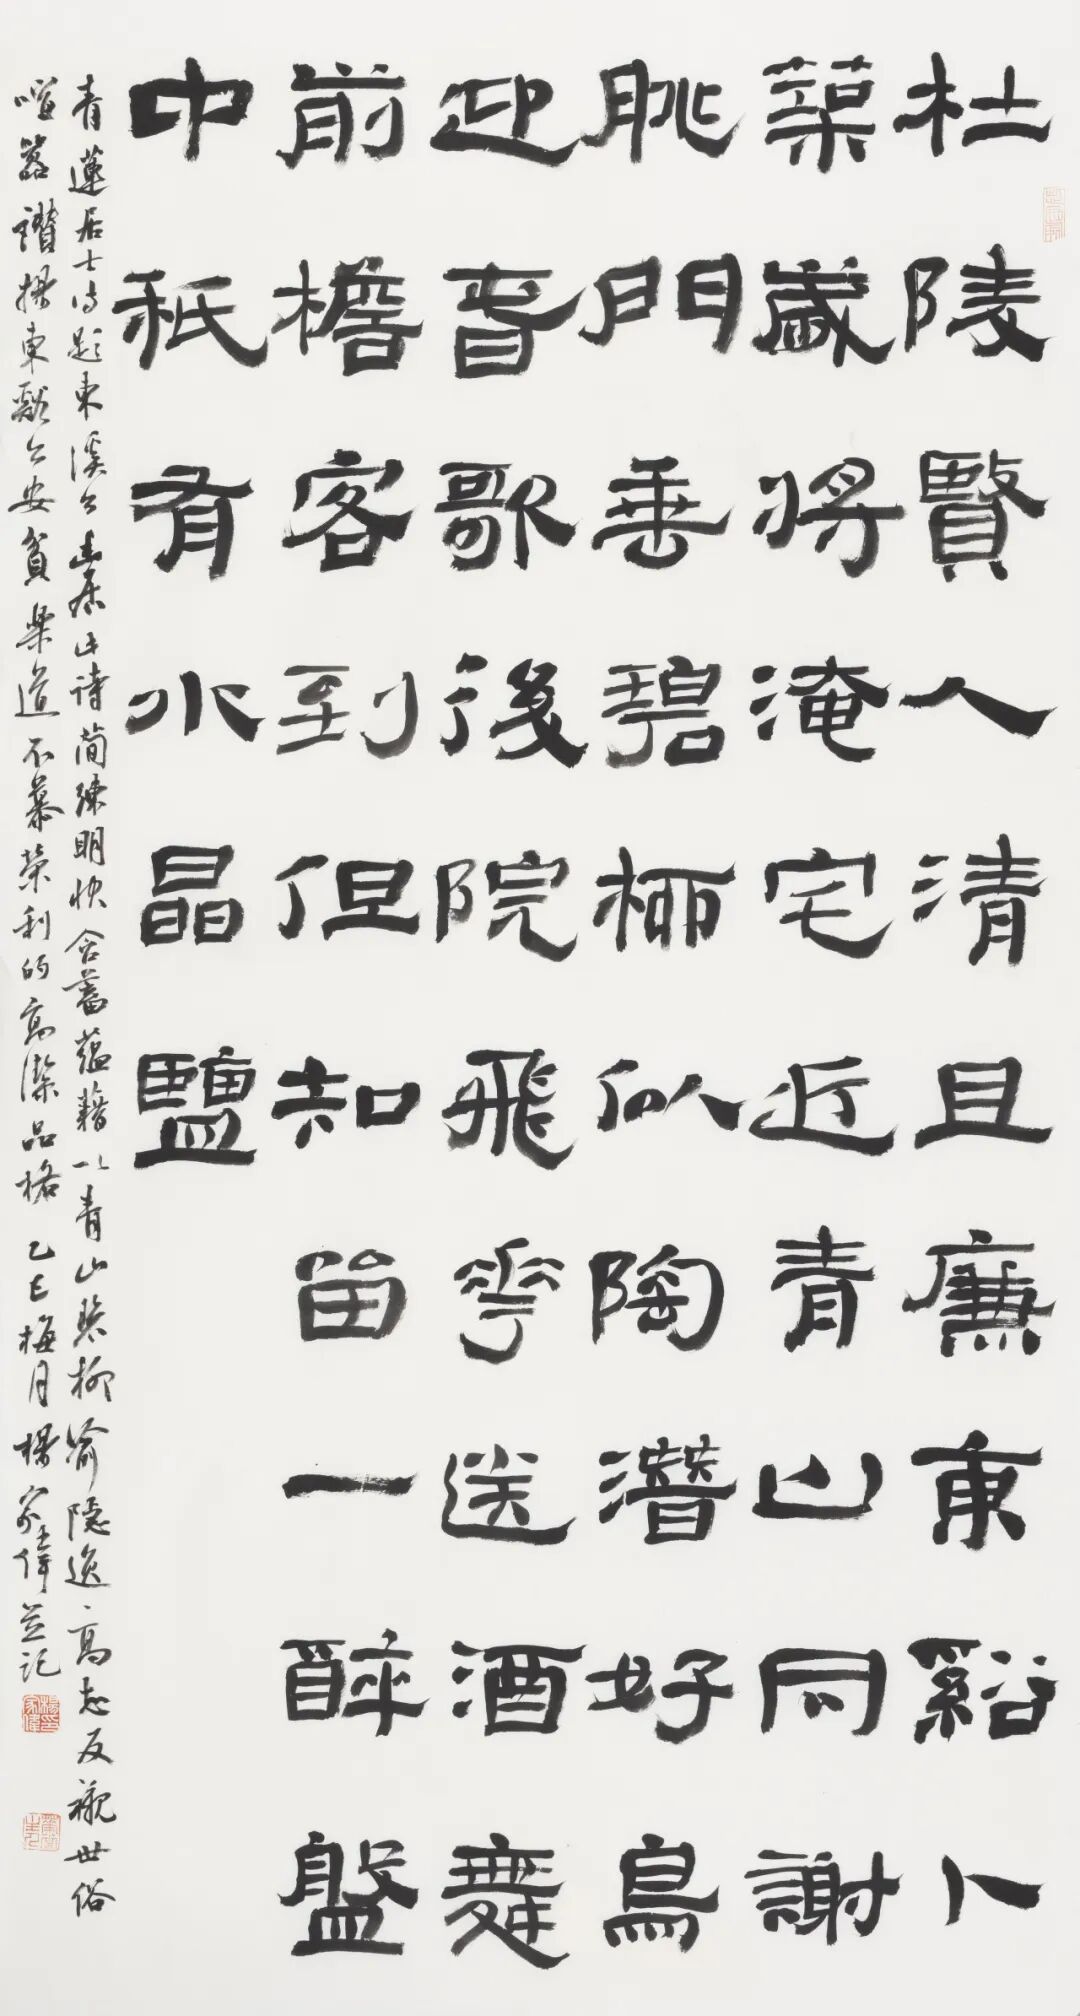 杜陵賢人清且廉東谿卜
築歲將淹宅近青山同謝
脁門垂碧柳似陶潛好鳥
迎春歌後院飛花送酒舞
前檐客到但知留一醉盤
中秖有水晶鹽
青蓮居士詩題東溪公幽居此詩簡練明快含蓄蘊藉以青山碧柳喻隱逸高志反襯世俗
喧囂讚揚東谿公安貧樂道不慕榮利的高潔品格乙巳梅月楊家偉並記
楊家偉